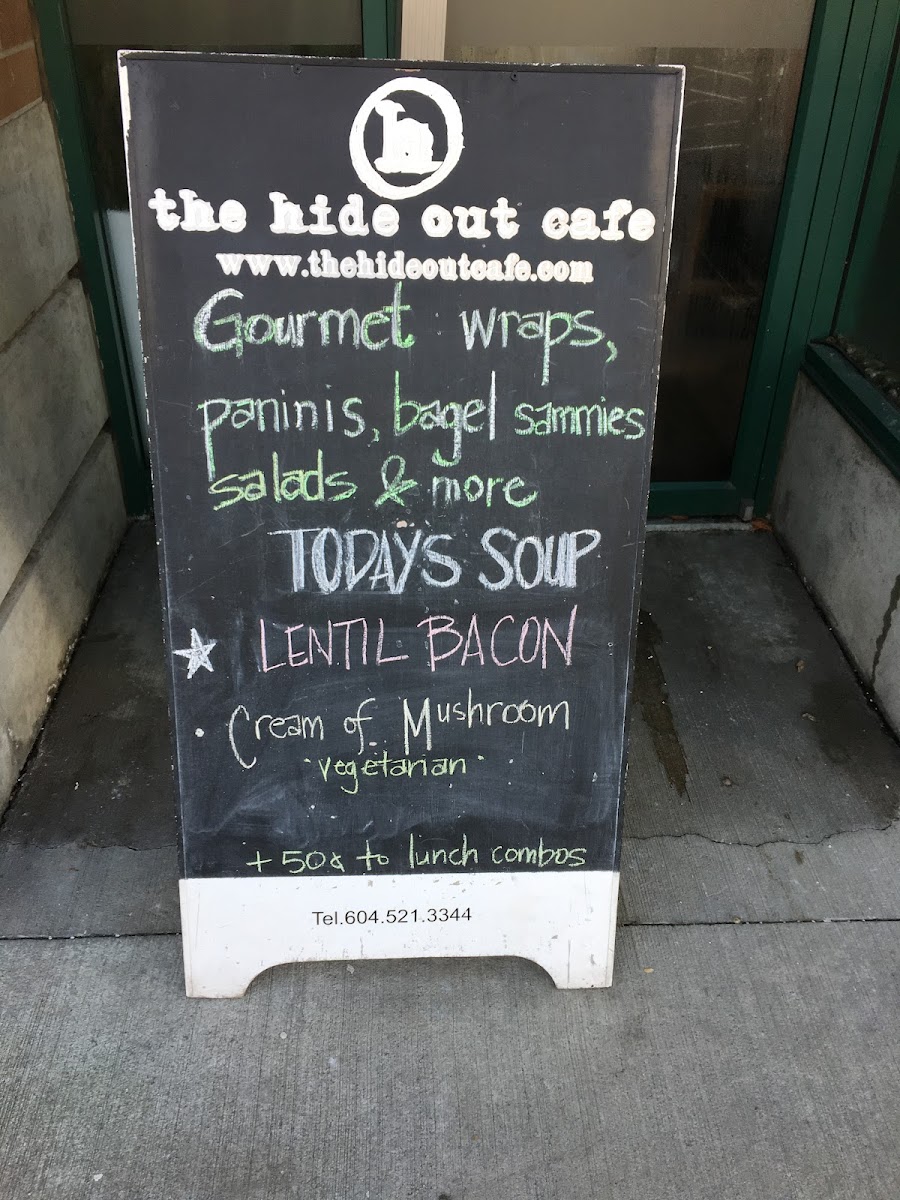 the hide out cafe
www.thehideoutcafe.com
Gourmet wraps,
paninis, bagel sammies
salads & more
TODAYS SOUP
LENTIL BACON
Cream of Mushroom
· vegetarian ·
+ 50¢ to lunch combos
Tel.604.521.3344